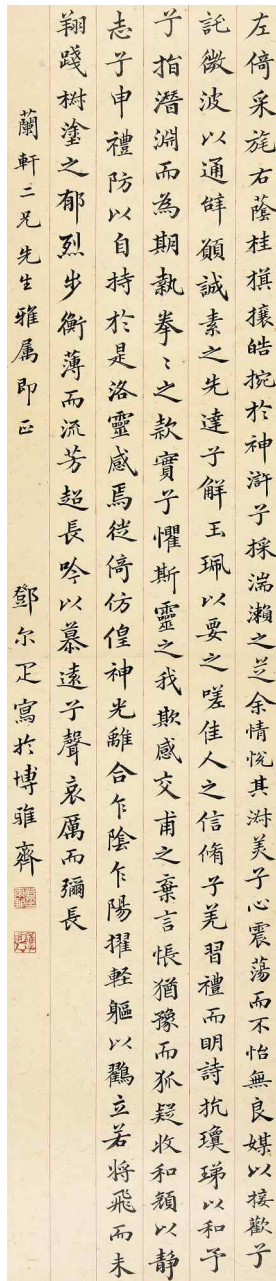 左倚采旄右蔭桂旗攘皓捥於神滸子採湍瀨之芝余情悅其淑美子心震蕩而不怡無良媒以接歡子
託微波以通辞願誠素之先達子解玉珮以要之嗟佳人之信脩子羌習禮而明詩抗瓊珶以和予
子指潛淵而為期執拳〻之款實子懼斯靈之我欺感交甫之棄言悵猶豫而狐疑收和顏以靜
志子申禮防以自持於是洛靈感焉徙倚仿偟神光離合乍陰乍陽擢軽軀以鸖立若將飛而未
翔踐椒塗之郁烈步衡薄而流芳超長吟以慕遠子聲哀厲而彌長
蘭軒二兄先生雅属即正
鄧尔疋寫於博雅齋